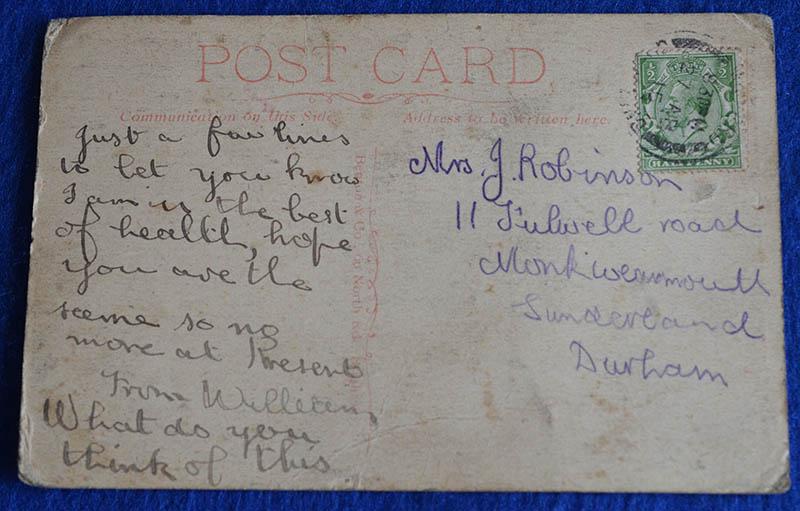 POST CARD
Communication on this Side.
Address to be written here.
Just a few lines
to let you know
I am in the best
of health, hope
you are the
same so no
more at Present
From William,
What do you
think of this
Mrs. J. Robinson
11 Fulwell road
Monkwearmouth
Sunderland
Durham
½
½
HALFPENNY
& Co.
North